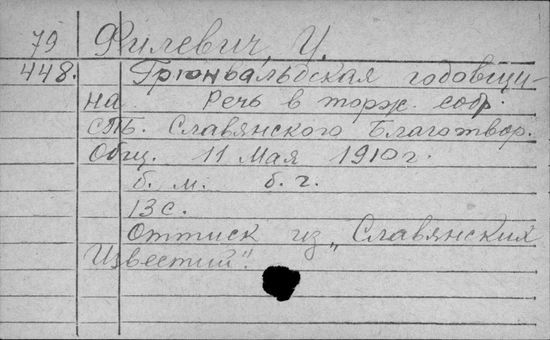 79 Филевич, И.
448. Грюнвальдская годовщи-
на. Речь в торж. собр.
СПБ. Славянского Благотвор.
Общ. 11 Мая 1910 г.
б. м. б. г.
13 с.
Оттиск из „Славянских
Известий".